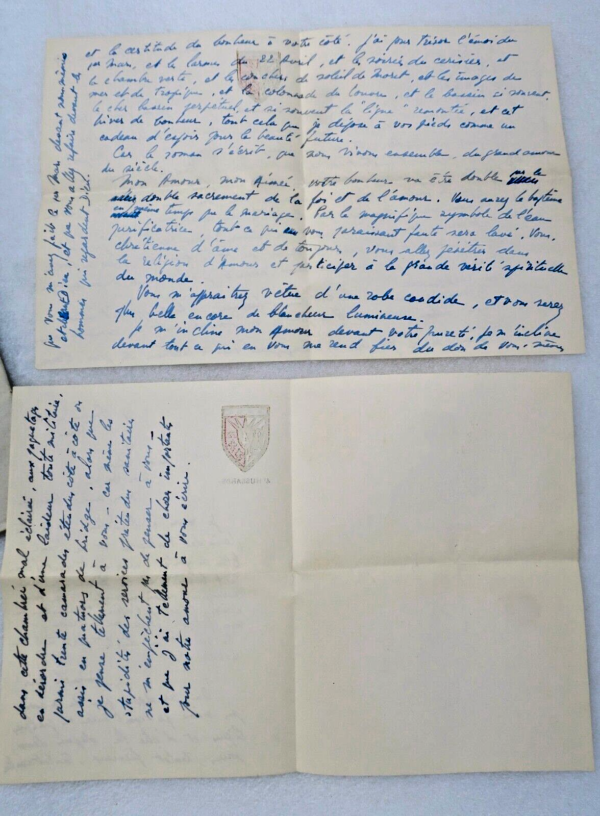 et la certitude du bonheur à votre côté. J'ai pour trésor l'émoi du
1er mars, et les larmes du 22 avril, et la soirée du cerisier, et
la chambre verte, et le de soleil de et les images de
mer et de et la colonnade du Louvre, et le bassin si
le cher perpétuel, et si souvent la "ligne" remontée, et cet
hiver de bonheur, tout cela que je dépose à vos pieds comme un
cadeau d'espoir pour la beauté future.
Car le roman s'écrit, que nous vivons ensemble, du grand amour
du siècle.
Mon Amour, mon Aimée, votre bonheur va être double
double sacrement de la foi et de l'amour. Vous aurez le baptême
en même temps que le mariage. Par le magnifique symbole de l'eau
purificatrice, tout ce qui en vous paraissait faute sera lavé. Vous,
chrétienne d'âme et de toujours, vous allez pénétrer dans
la religion d'Amour et participer à la grande vérité spirituelle
du monde.
Vous m'apparaîtrez vêtue d'une robe candide, et vous serez
plus belle encore de blancheur lumineuse.
Je m'incline mon Amour devant votre pureté, je m'incline
devant tout ce qui en vous me rend fier du don de vous-même
que vous m'avez fait le 1er mars devant
Dieu, et que vous allez refaire devant les
hommes qui représentent Dieu.
dans cette chambrée mal éclairée, aux paquetages
en désordre et d'une laideur toute militaire,
parmi trente camarades étendus côte à côte ou
assis en parties de bridge, alors que
je pense tellement à vous - car même la
stupidité des services prétendus sanitaires
ne m'empêchent pas de penser à vous -
et que j'ai tellement de choses importantes
pour notre amour à vous écrire.